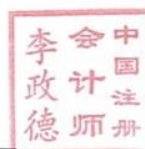 中国注册
会计师
李政德